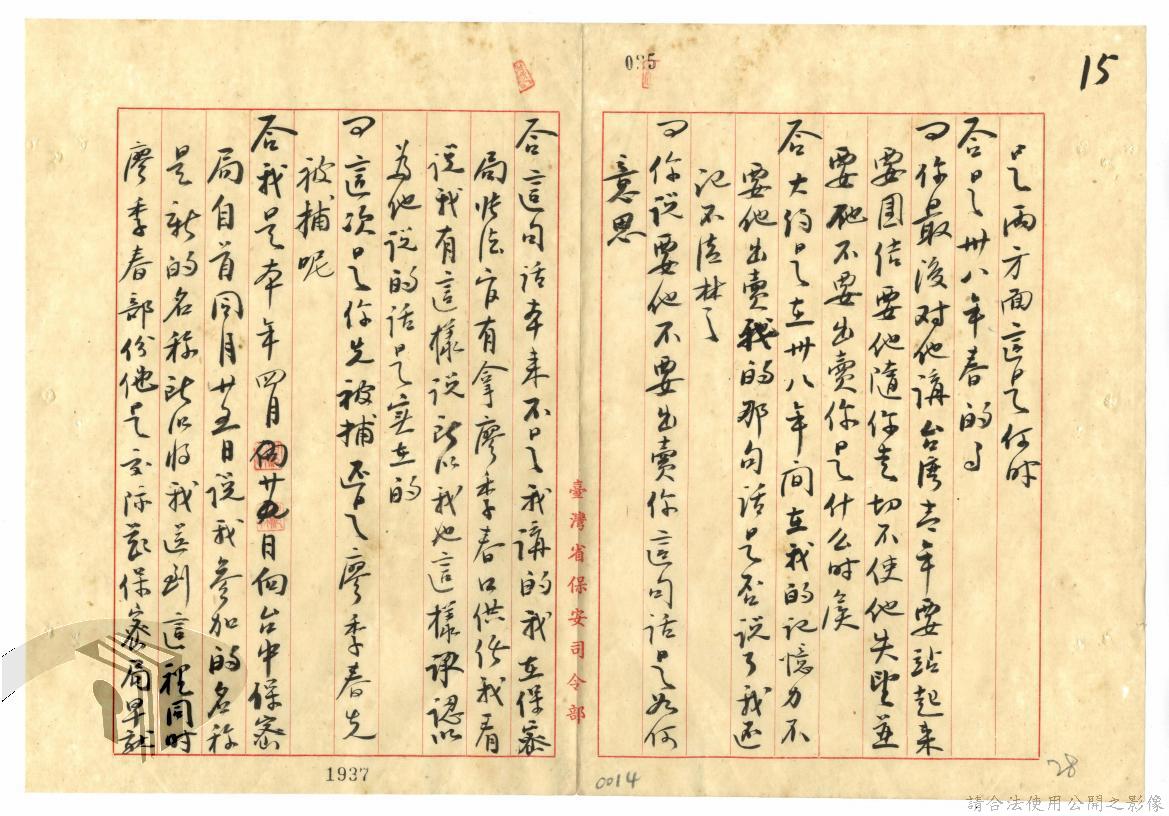 15
035
只兩方面這是何時
答是卅八年春的了
问你最後对他講台湾青年要站起来
要团结要他隨你走切不使他失望並
要他不要出賣你是什么时候
答大約是在卅八年间在我的记憶力不
要他出賣我的那句话是否说了我还
记不清楚了
问你说要他不要出賣你這句话是如何
意思
臺灣省保安司令部
答這句话本来不是我講的我在保密
局张法官有拿廖季春口供给我看
说我有這樣说所以我也這樣承認以
为他说的话是实在的
问這次是你先被捕还是廖季春先
被捕呢
答我是本年四月廿九日向台中保密
局自首同月廿五日说我参加的名称
是新的名称所以将我送到這裡同时
廖季春部份他是交际范保密局早就
1937
0014
28
請合法使用公開之影像